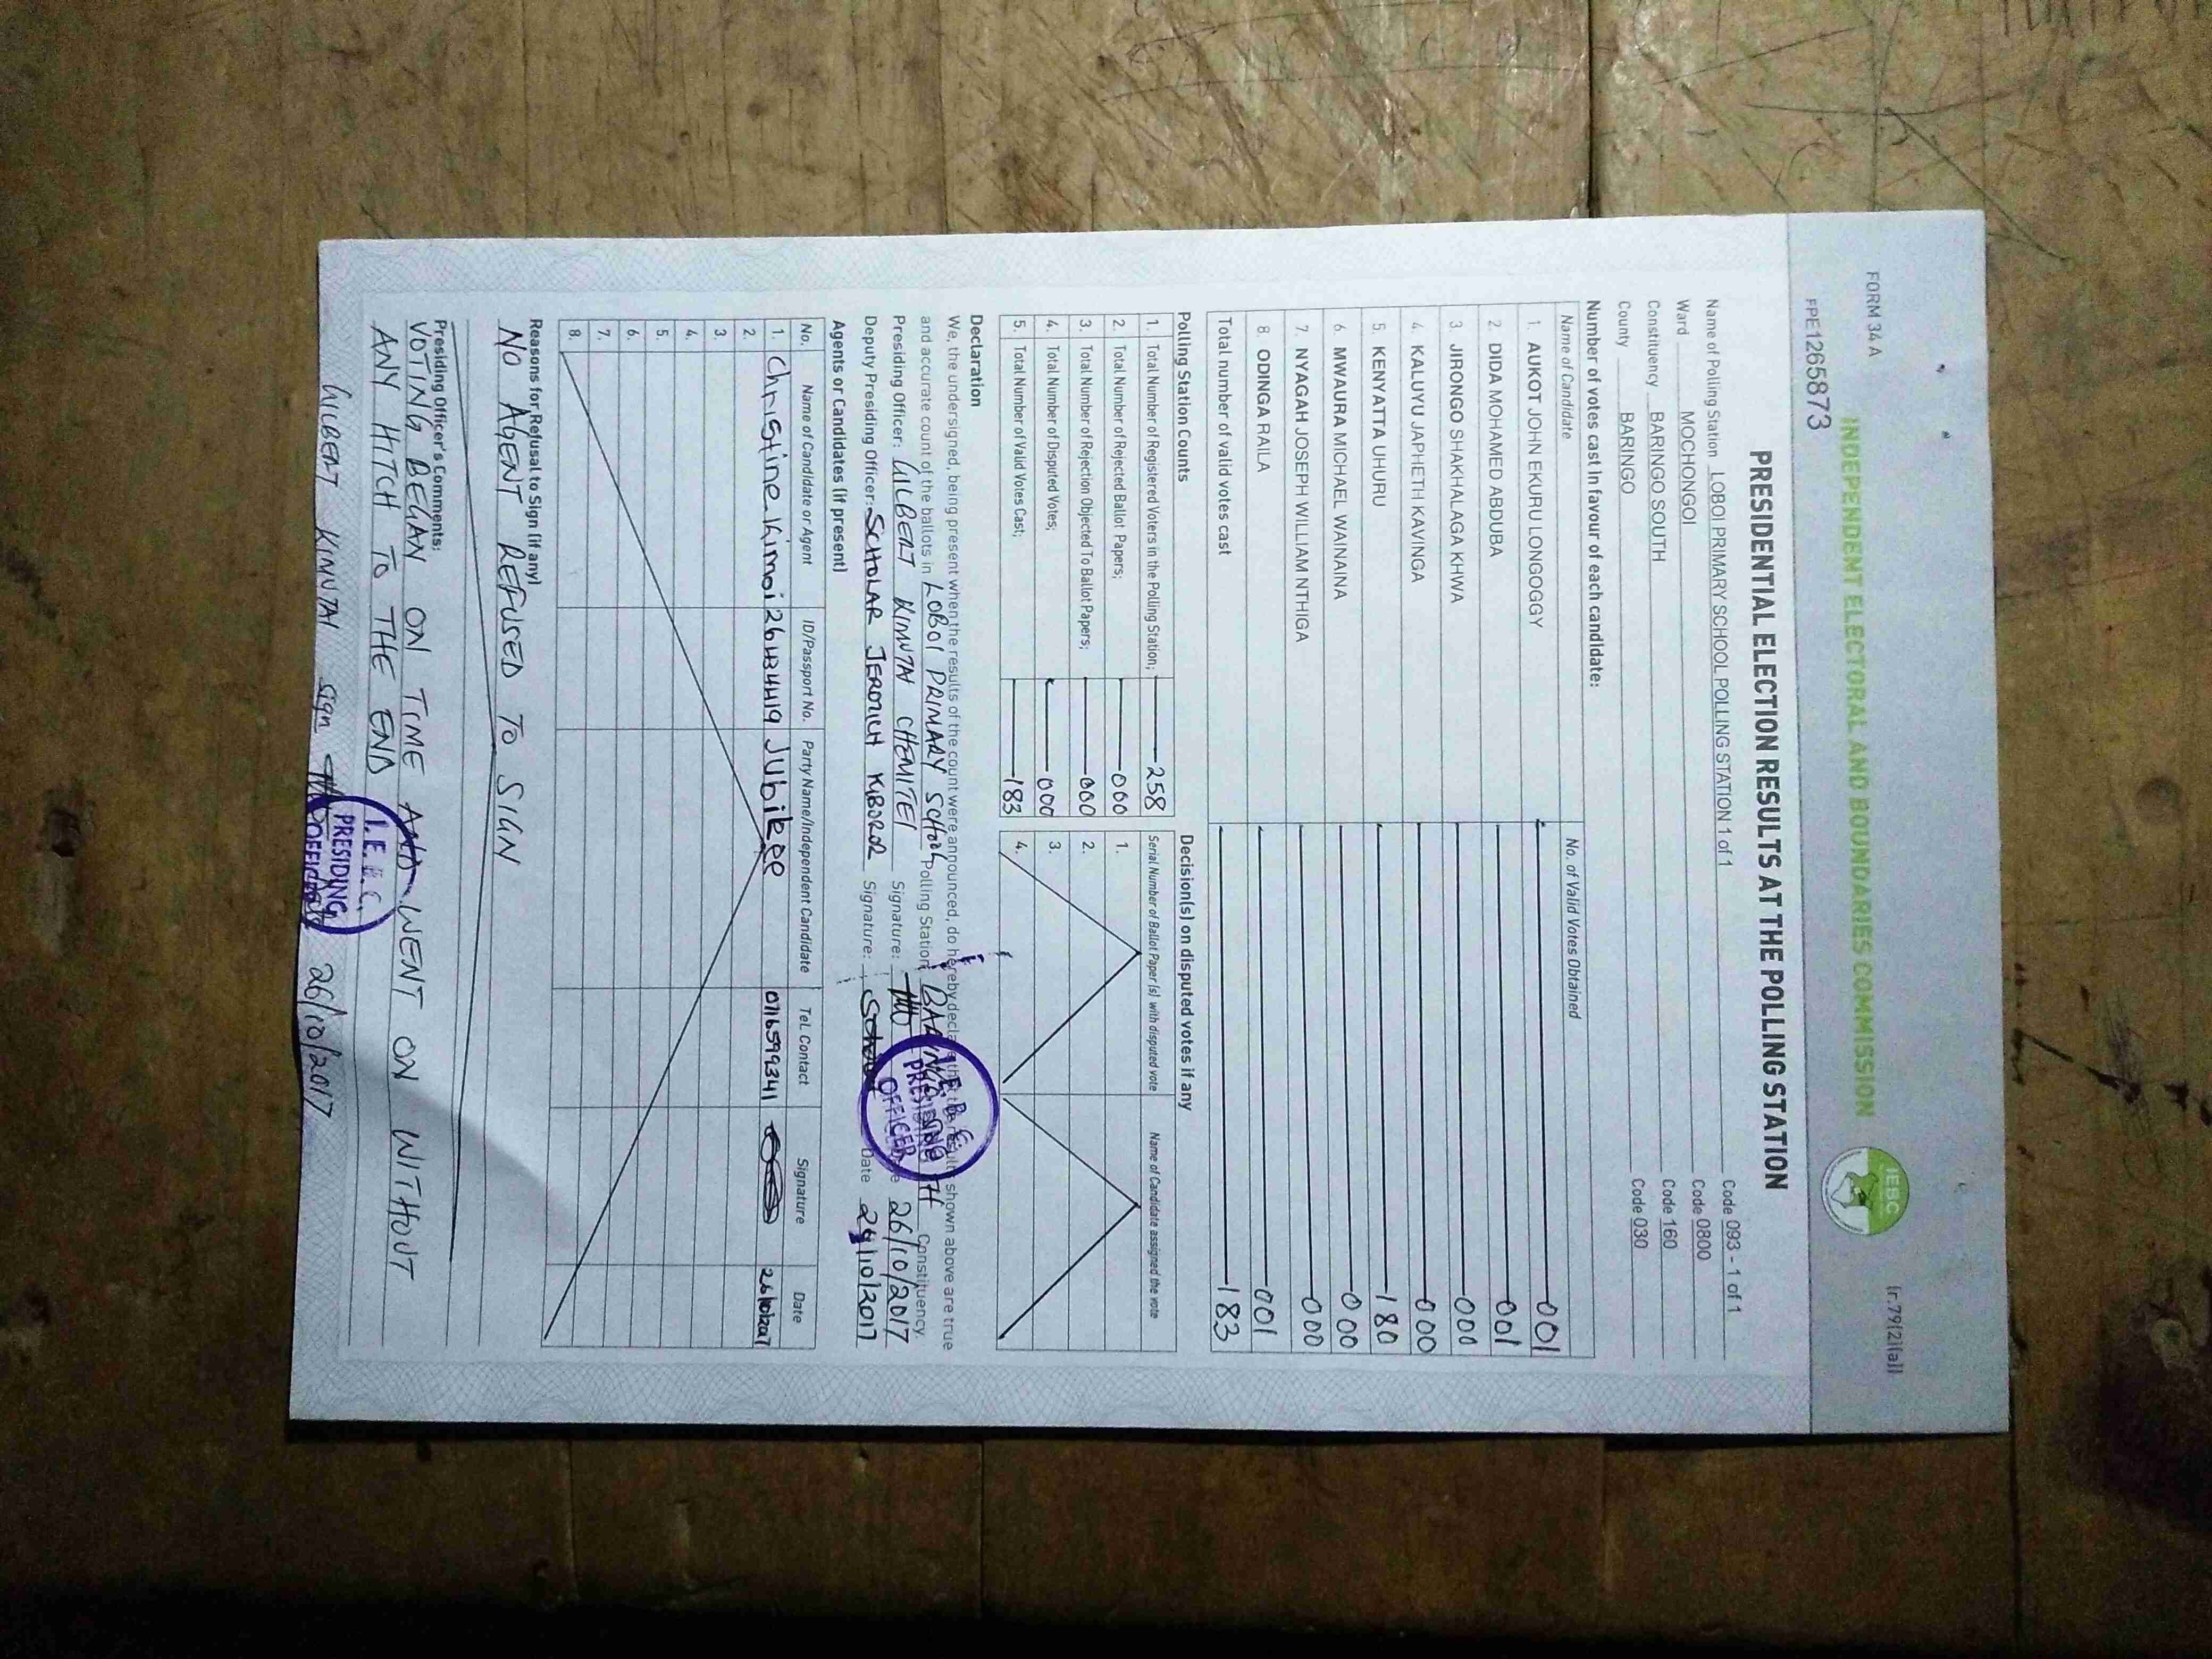 FORM 34 A
(r.79(2)(a))
INDEPENDENT ELECTORAL AND BOUNDARIES COMMISSION
IEBC
FPE1265873
PRESIDENTIAL ELECTION RESULTS AT THE POLLING STATION
Name of Polling Station LOBOI PRIMARY SCHOOL POLLING STATION 1 of 1 Code 093 - 1 of 1
Ward MOCHONGOI Code 0800
Constituency BARINGO SOUTH Code 160
County BARINGO Code 030
Number of votes cast in favour of each candidate:
Name of Candidate No. of Valid Votes Obtained
1. AUKOT JOHN EKURU LONGOGGY 001
2. DIDA MOHAMED ABDUBA 001
3. JIRONGO SHAKHALAGA KHWA 000
4. KALUYU JAPHETH KAVINGA 000
5. KENYATTA UHURU 180
6. MWAURA MICHAEL WAINAINA 000
7. NYAGAH JOSEPH WILLIAM NTHIGA 000
8. ODINGA RAILA 001
Total number of valid votes cast 183
Polling Station Counts Decision(s) on disputed votes if any
1. Total Number of Registered Voters in the Polling Station; 258 Serial Number of Ballot Paper (s) with disputed vote Name of Candidate assigned the vote
2. Total Number of Rejected Ballot Papers; 000 1.
3. Total Number of Rejection Objected To Ballot Papers; 000 2.
4. Total Number of Disputed Votes; 000 3.
5. Total Number of Valid Votes Cast; 183 4.
Declaration
We, the undersigned, being present when the results of the count were announced, do hereby declare that the results shown above are true
and accurate count of the ballots in LOBOI PRIMARY SCHOOL Polling Station, BARINGO SOUTH Constituency.
Presiding Officer: GILBERT KIMNTAI CHEMITEI Signature: Date 26/10/2017
Deputy Presiding Officer: SCHOLAR JEROTICH KIBOROR Signature: Date 26/10/2017
I.E.B.C. PRESIDING OFFICER
Agents or Candidates (if present)
No. Name of Candidate or Agent ID/Passport No. Party Name/Independent Candidate Tel. Contact Signature Date
1. Christine Kimoi 26434419 Jubilee 0716599341 26/10/2017
2.
3.
4.
5.
6.
7.
8.
Reasons for Refusal to Sign (if any)
NO AGENT REFUSED TO SIGN
Presiding Officer's Comments:
VOTING BEGAN ON TIME AND WENT ON WITHOUT
ANY HITCH TO THE END
I.E.B.C.
PRESIDING
OFFICER
GILBERT KIMNTAI sign 26/10/2017